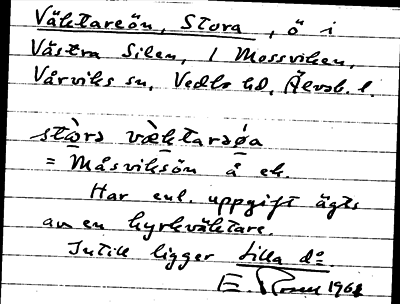 Väktareön, Stora, ö i
Västra Silen, / Mossviken,
Vårviks sn, Vedbo hd, Älvsb. l.
stòra væ̀ktarǝø̀a
= Måsviksön å ek.
Har enl. uppgift ägts
av en kyrkväktare.
Intill ligger Lilla do.
E. 1968